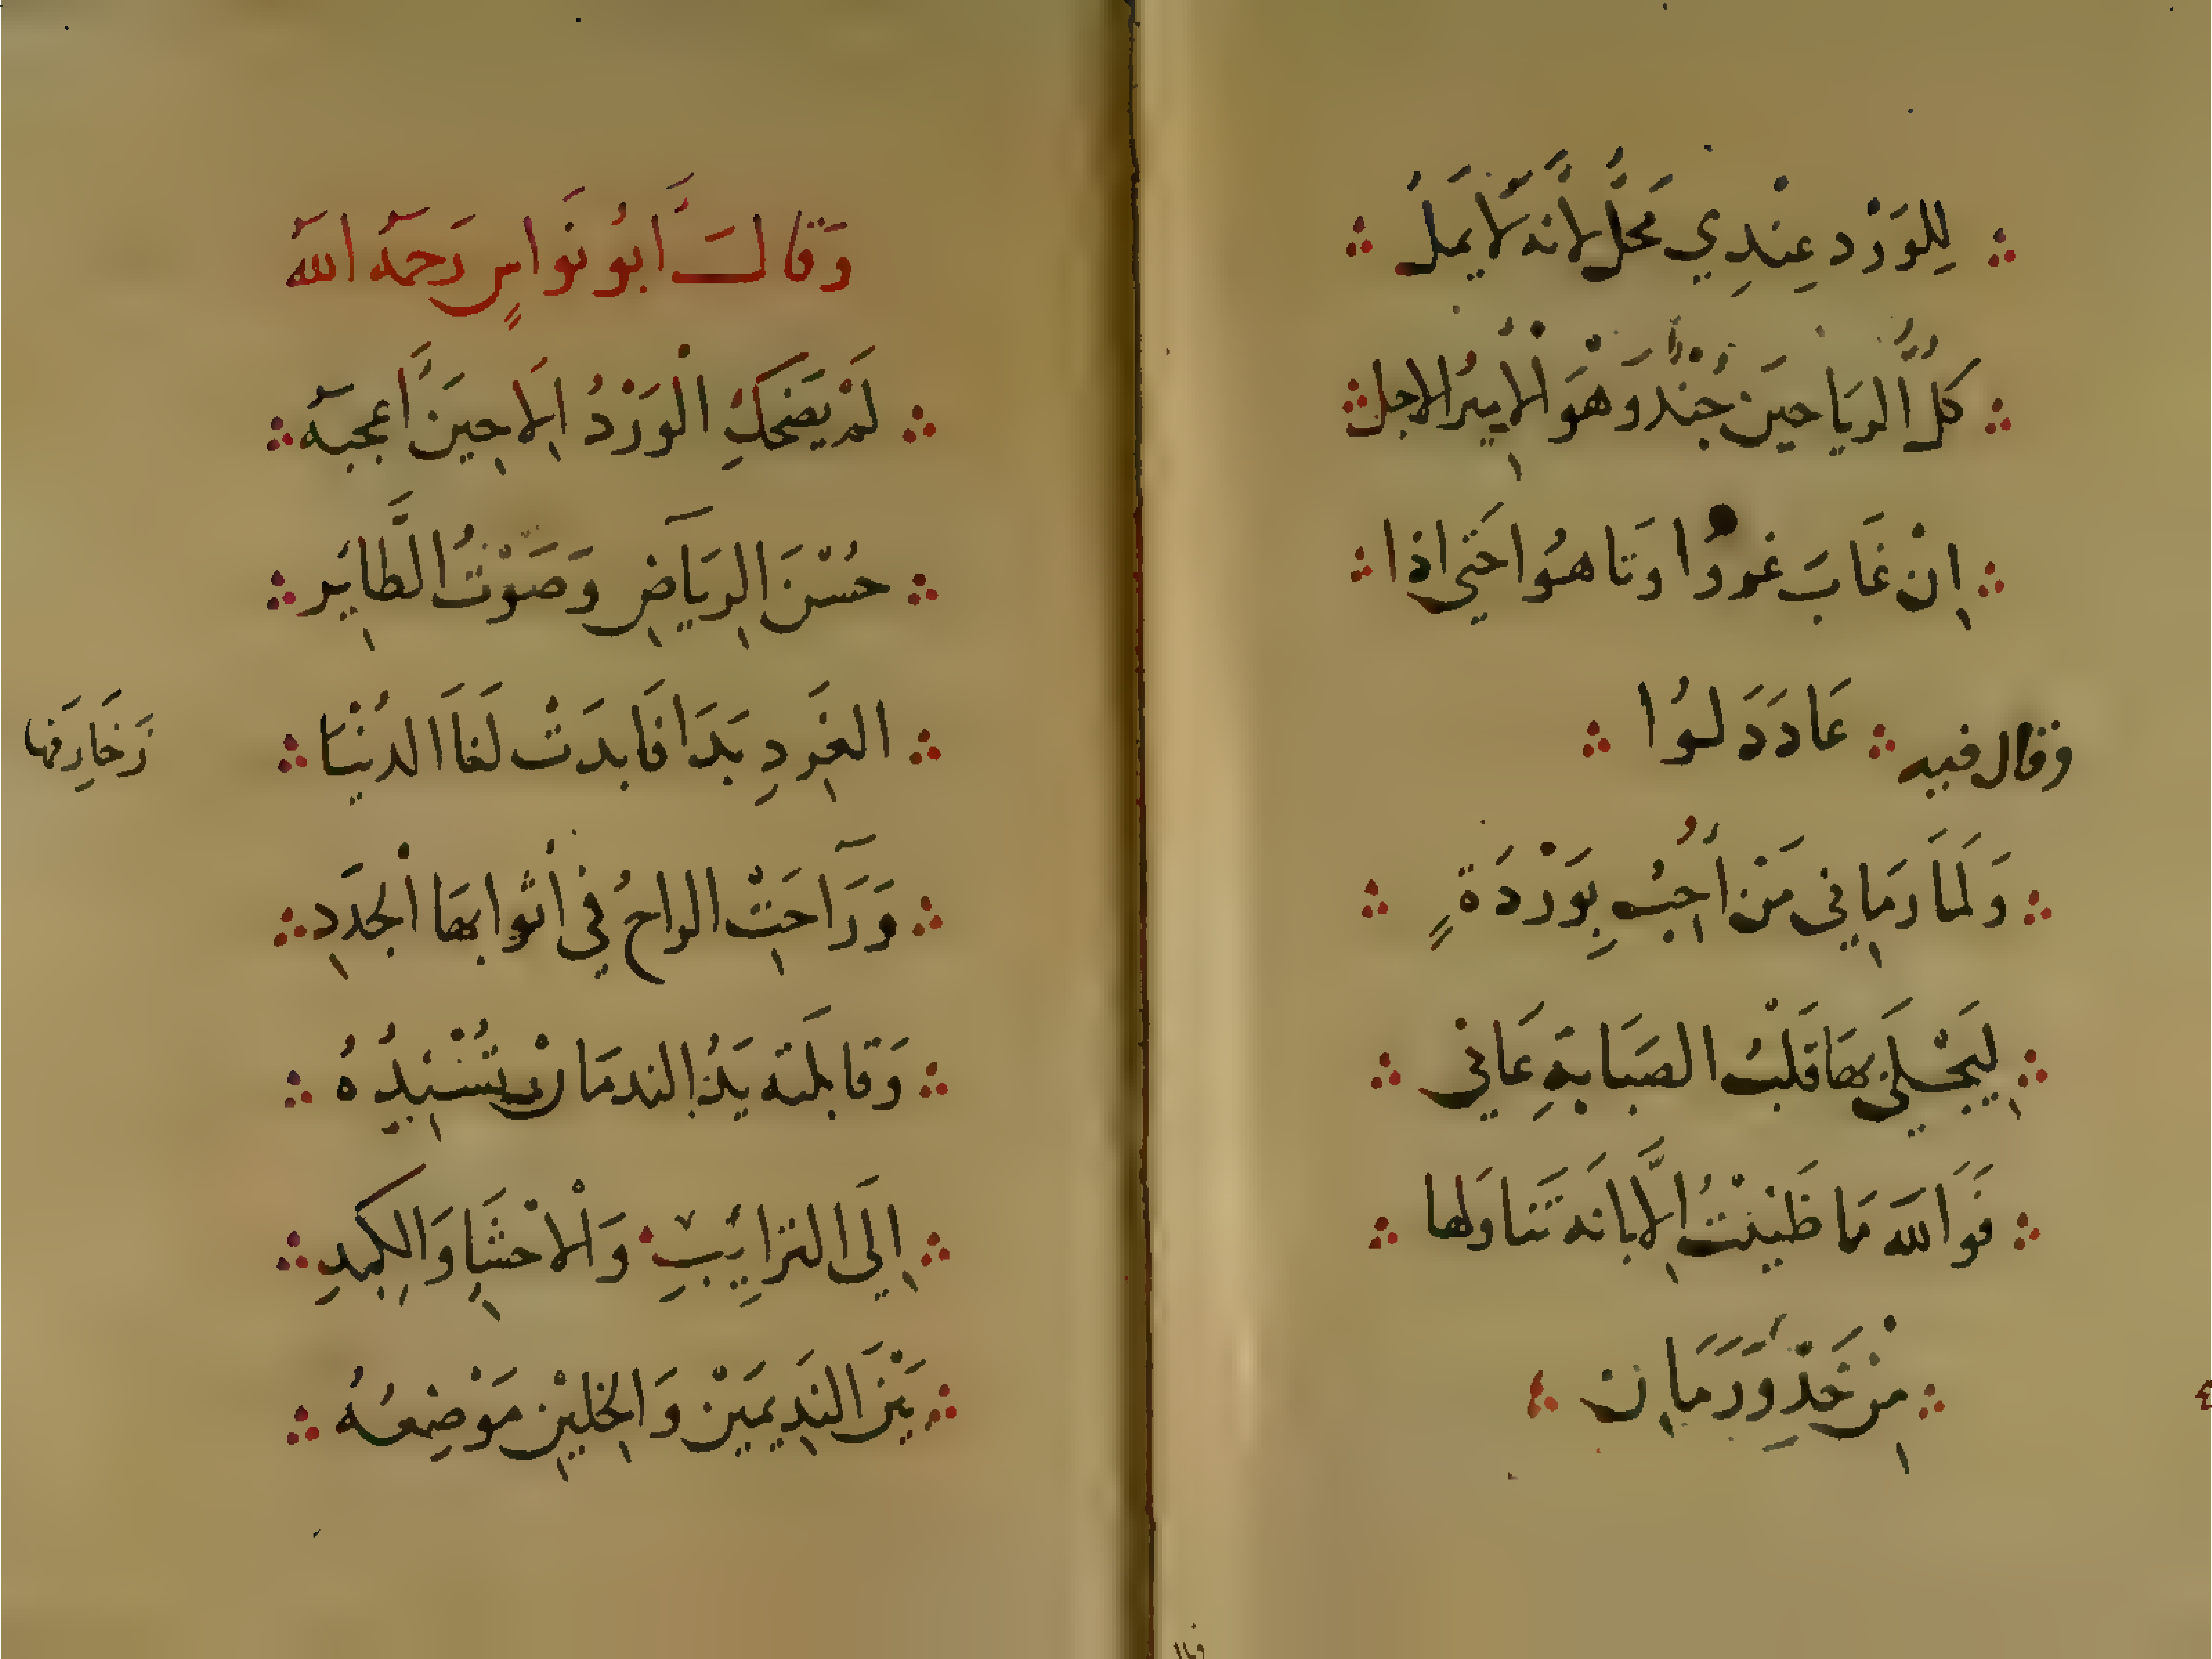 لِلوَرْدِ عِنْدِي مَحَلٌّ لانه لا يملُّ
كلُّ الرياحين جُنْدٌ وَهْوَ الأميرُ الاجل
اِنْ غَابَ عَزوُا وَتَاهُوا حَتى اذا
عَادَ ذَلوُا
وقال فيه
وَلَما رَمَانِى مَنْ أُحِبُ بِوَرْدَةٍ
لِيَجْلىَ بهَا قَلْبُ الصَبَابةِ عَانِى
فَوَالله مَا ظَنَنْتُ اِلَّا بانه تَنَاوَلها
مِنْ خَدِّ وَرَمَانِ
وَقَالَ أَبُو نَوَاسٍ رَحِمَهُ اللَّه
لَمْ يَضحَكِ الْوَرْدُ اِلا حِينَ أَعجبَه
حُسْنَ الرِيَاضِ وَصَوْتُ الطَّايِرِ
الغَرِدِ بَدَا فَابدَتْ لَنَا الدُنْيَا
زَخَارِفها
وَرَاحَتِ الراحُ فِي أَثوابهَا الْجدَدِ
وَقَابلته يَدُ الندمَانِ تُسْنِدُهُ
اِلَى التَرايِبِ وَالْاحْشَاءِ وَالكِبدِ
بَيْنَ النَدِيمَيْنِ وَالخِليْنِ مَوْضِعُهُ